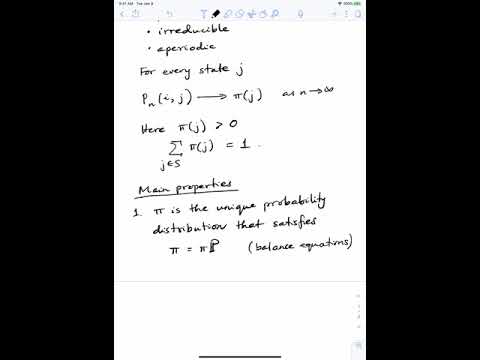 • irreducible
• aperiodic
For every state j
Pₙ(i,j) ⟶ π(j) as n→∞
Here π(j) > 0
∑ π(j) = 1.
j∈S
Main properties
1. π is the unique probability
distribution that satisfies
π = πℙ (balance equations)